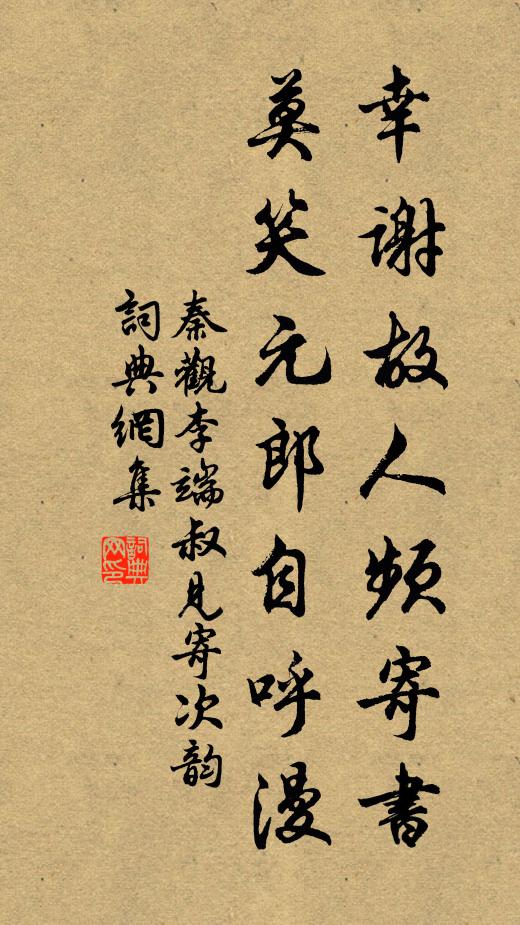 幸謝故人頻寄書
莫笑元郎自呼漫
秦觀李端叔見寄次韻
詞典網集
詞典
网印